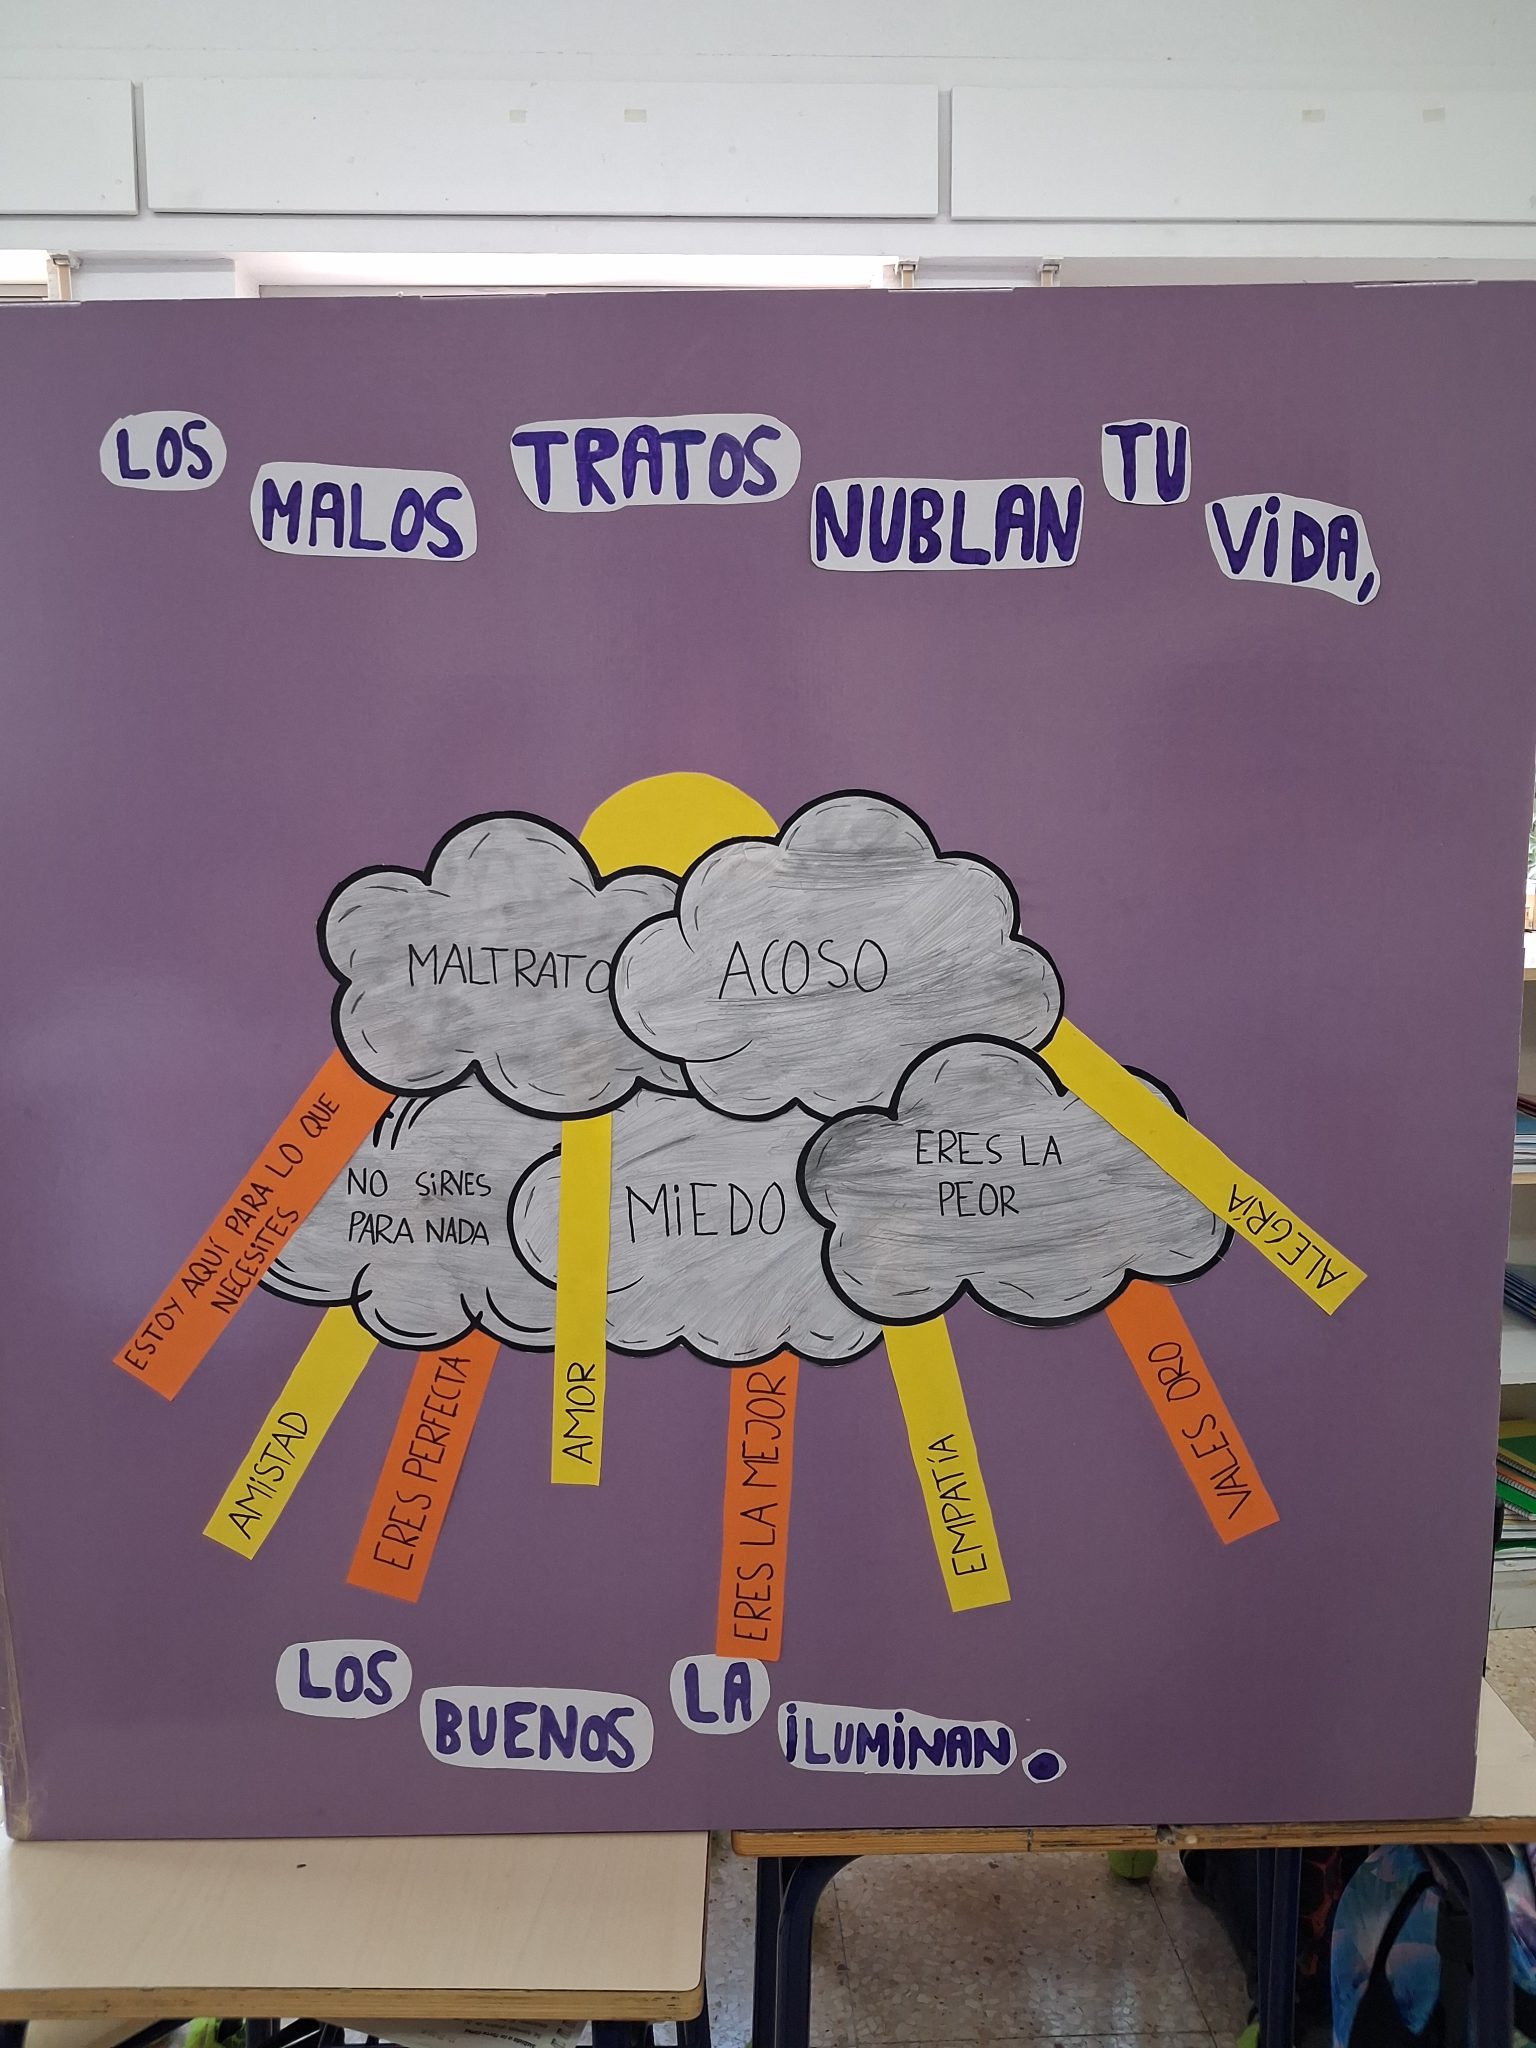 LOS MALOS TRATOS NUBLAN TU VIDA,
MALTRATO
ACOSO
NO SIRVES
PARA NADA
MIEDO
ERES LA
PEOR
ESTOY AQUÍ PARA LO QUE
NECESITES
AMISTAD
ERES PERFECTA
AMOR
ERES LA MEJOR
EMPATÍA
VALES ORO
ALEGRÍA
LOS BUENOS LA ILUMINAN.